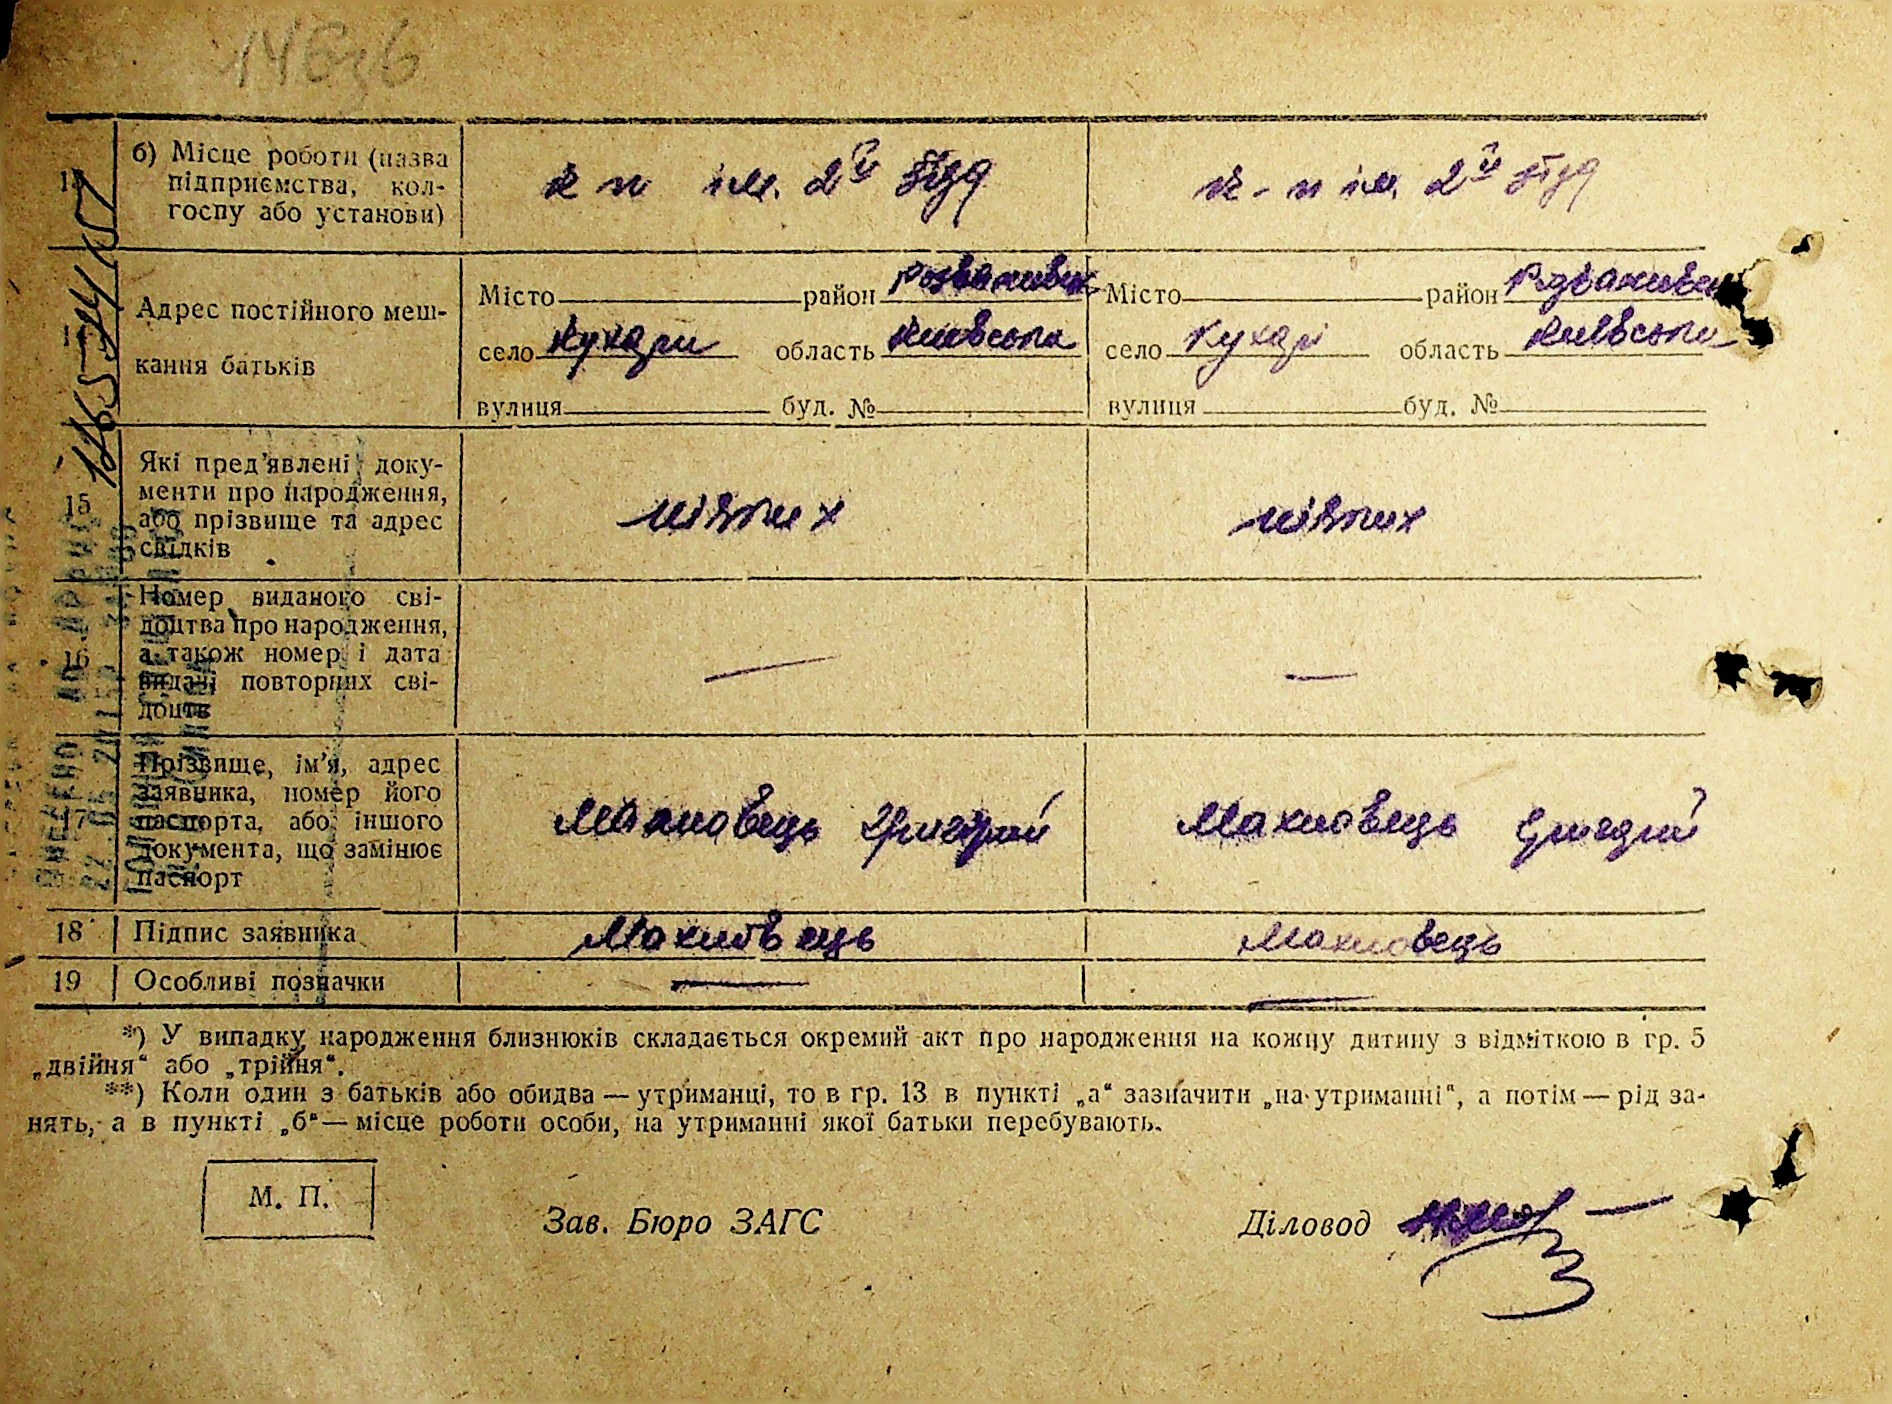 б) Місце роботи (назва
підприємства, кол-
госпу або установи)
к п ім. 2й
к-п ім. 2й
Адрес постійного меш-
кання батьків
Місто район
село Кухари область Київська
вулиця буд. №
Місто район
село Кухарі область Київська
вулиця буд. №
15
Які пред'явлені документи
менти про народження,
або прізвище та адрес
свідків
16
Номер виданого сві-
доцтва про народження,
а також номер і дата
видачі повторних сві-
доцтв
17
Прізвище, ім'я, адрес
заявника, номер його
паспорта, або іншого
документа, що замінює
паспорт
Махновець Григорій
Махновець Григорій
18 Підпис заявника Махновець Махновець
19 Особливі позначки
*) У випадку народження близнюків складається окремий акт про народження на кожну дитину з відміткою в гр. 5
„двійня“ або „трійня“.
**) Коли один з батьків або обидва — утриманці, то в гр. 13 в пункті „а“ зазначити „на утриманні“, а потім — рід за-
нять, а в пункті „б“ — місце роботи особи, на утриманні якої батьки перебувають.
М. П.
Зав. Бюро ЗАГС
Діловод